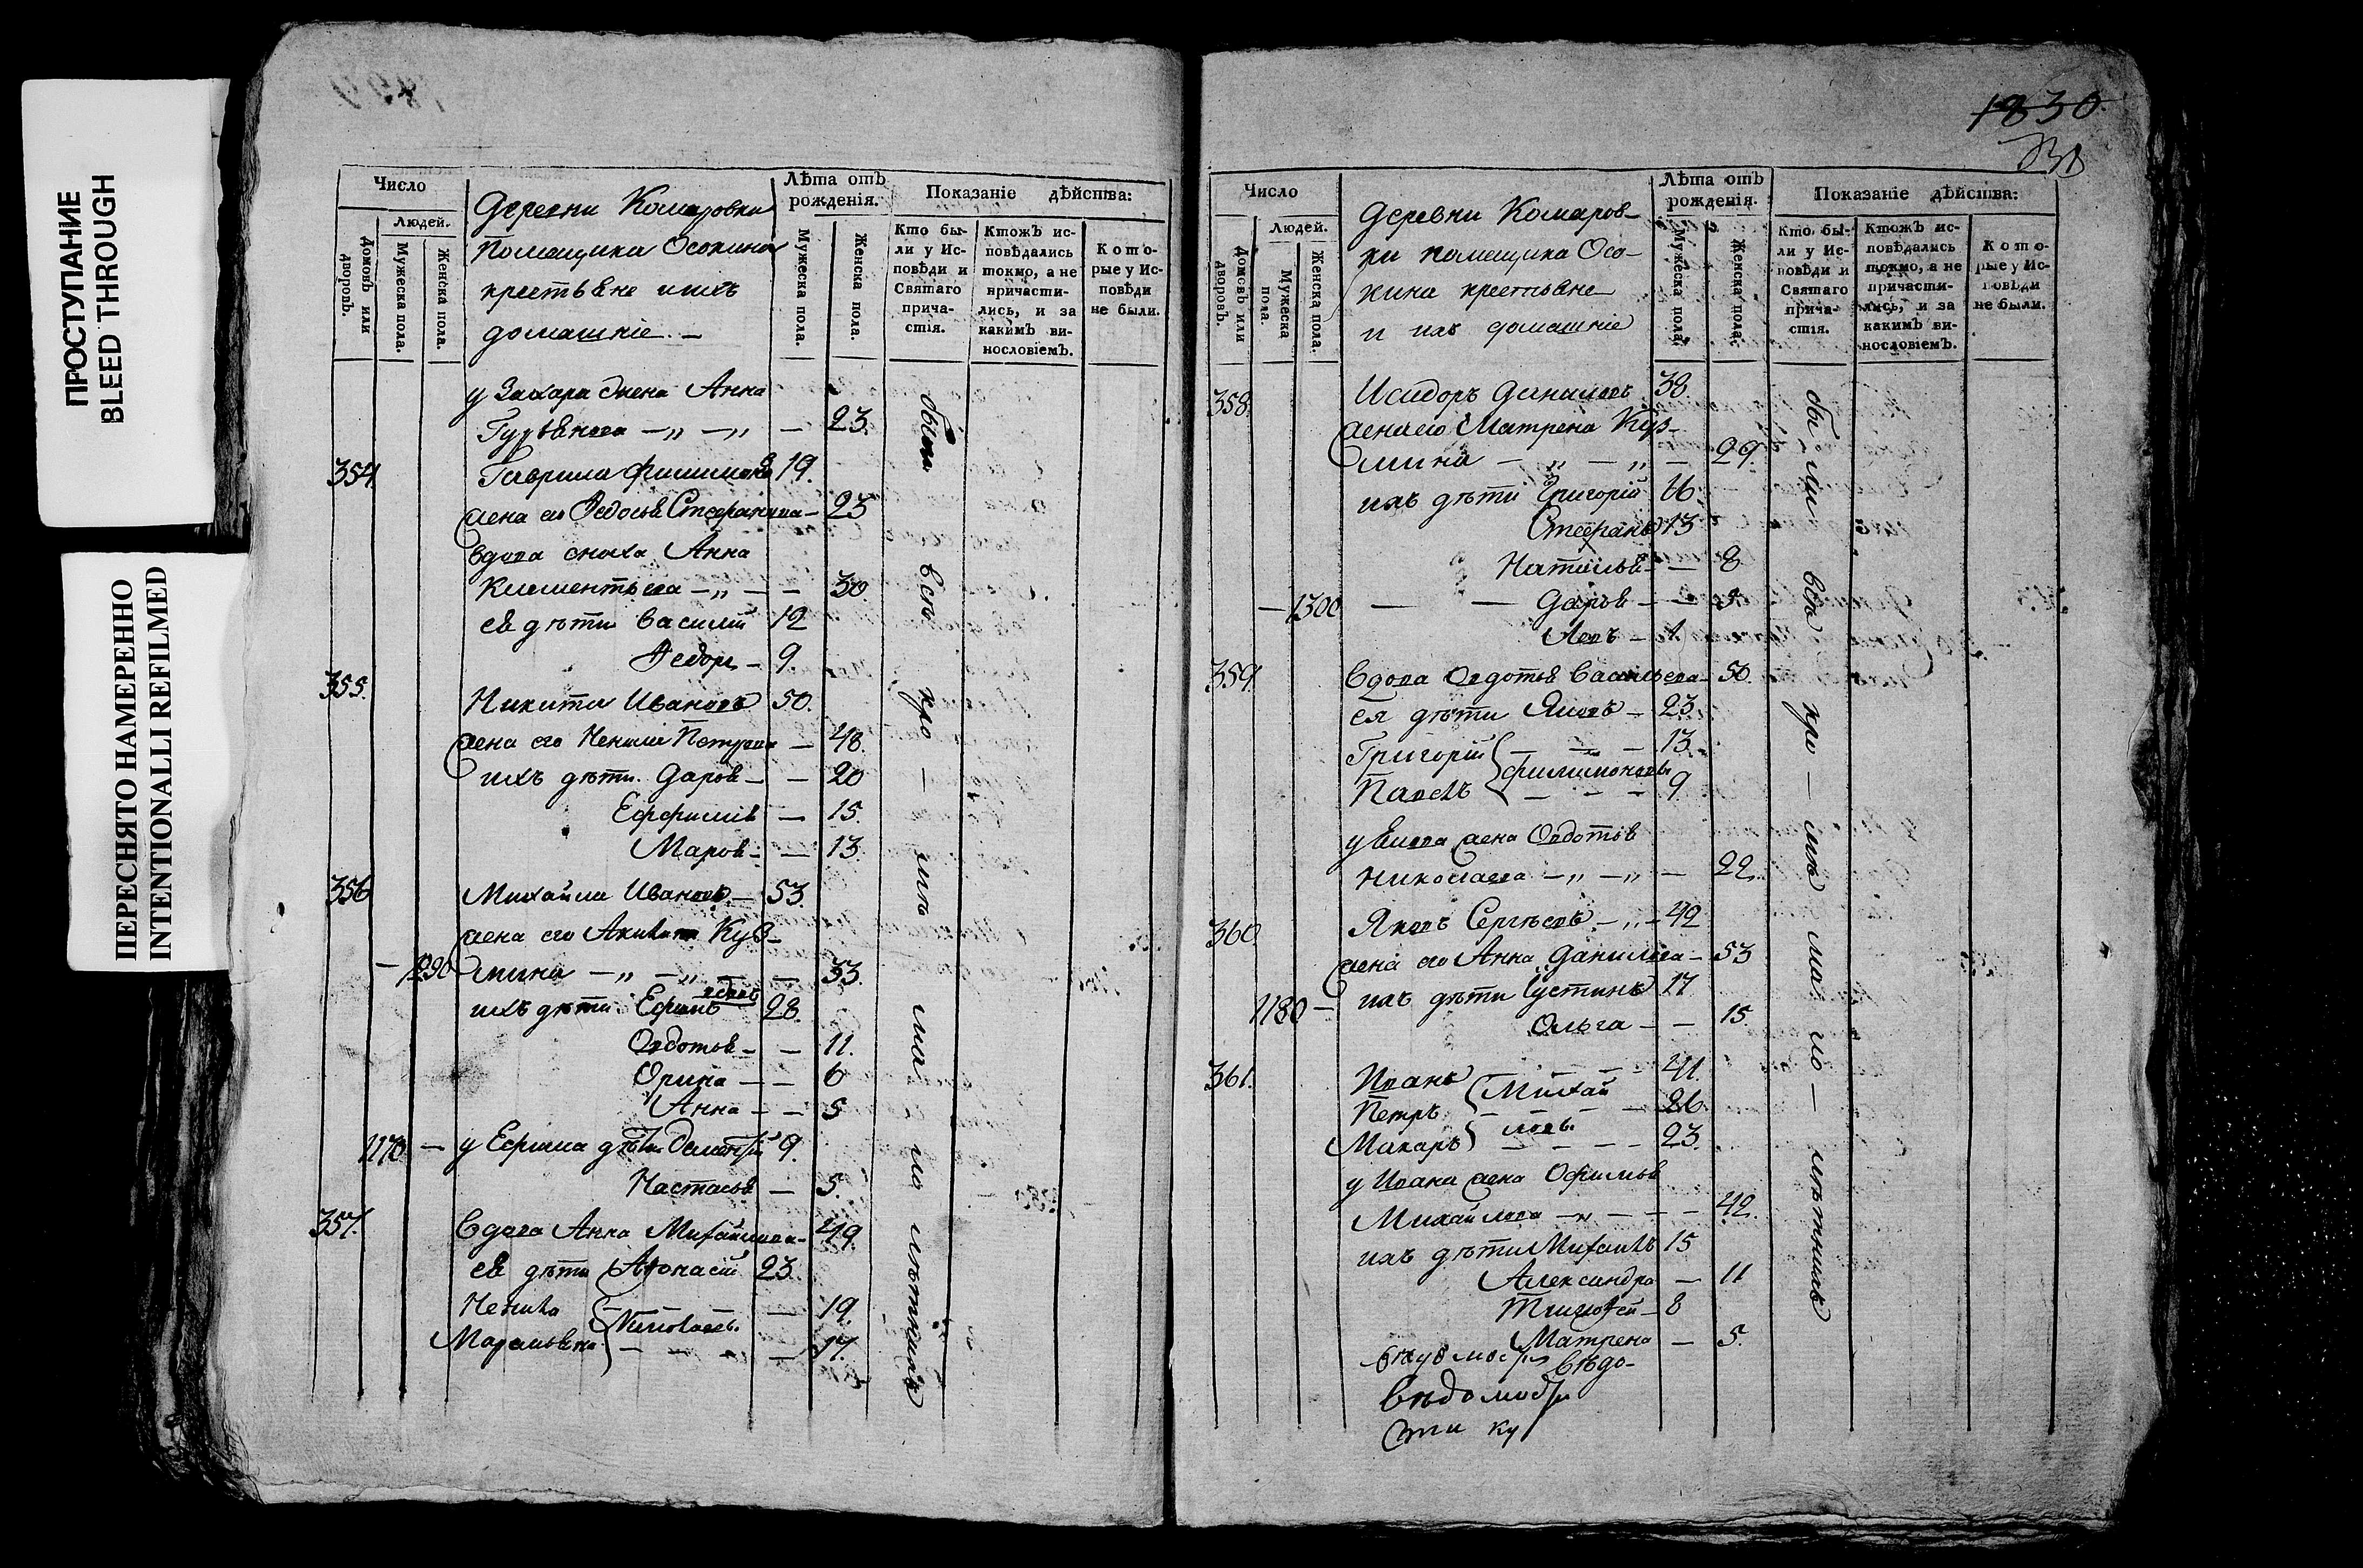 ПРОСТУПАНИЕ
BLEED THROUGH
ПЕРЕСНЯТО НАМЕРЕННО
INTENTIONALLI REFILMED
Число
Людей.
Домовъ или дворовъ.
Мужеска пола.
Женска пола.
Деревни Комаровки
Помещика Осокина
крестьяне ихъ
домашніе. —
Лѣта отъ рожденія.
Мужеска пола.
Женска пола.
Показаніе дѣйства:
Кто были у Исповѣди и Святаго причастія.
Ктожъ исповѣдались токмо, а не причастились, и за какимъ винословіемъ.
Которые у Исповѣди не были.
у Захара жена Анна
Гурьянова — „ — „ — 23.
354. Гаврила Филимоновъ 19.
жена его Федосья Стефанова — 25
вдова сноха Анна
Климентьева — „ — — 30.
ея дѣти Василій 12
Федоръ — 9.
355. Никита Ивановъ 50.
жена его Ненила Петрова — 48.
ихъ дѣти. Дарья — — 20
Ефимья — 15.
Марья — — 13.
356 Михайла Ивановъ — 53.
жена его Акилина Куз-
— 1290 мина — „ — „ — — 33.
ихъ дѣти. Ефимъ 28.
Овдотья — — 11.
Орина — — 6
Анна — — 5
1170 — у Ефима дѣти 9.
Настасья — 5.
357. Вдова Анна Михайлова — 49
ея дѣти Афонасій 23.
Ненила — 19.
Николаевы.
17.
были всѣ кро — мѣ мало лѣтнихъ
1830.
Число
Людей.
Домовъ или дворовъ.
Мужеска пола.
Женска пола.
Деревни Комаров-
ки помещика Осо-
кина крестьяне
и ихъ домашніе
Лѣта отъ рожденія.
Мужеска пола.
Женска пола.
Показаніе дѣйства:
Кто были у Исповѣди и Святаго причастія.
Ктожъ исповѣдались токмо, а не причастились, и за какимъ винословіемъ.
Которые у Исповѣди не были.
358. Исидоръ Даниловъ 38.
жена его Матрена Куз-
мина — „ — „ — 29.
ихъ дѣти Григорій 16.
Стефанъ 13
Наталья — — 8
— 1300 — — Дарья — —
359. Вдова Овдотья Васильева — 50.
ея дѣти Яковъ — 23
Григорій — — — 13.
Филимоновы
Павелъ — — — 9
у Якова жена Овдотья
Николаева — „ — „ — 22.
360. Яковъ Сергѣевъ — „ — 42
жена его Анна Данилова — 53
1180 — ихъ дѣти Іустинъ 17
Ольга — — 15.
361. Иванъ — — — 41.
Петръ Михай — 26.
Макаръ ловы — — — 23.
у Ивана жена Офимья
Михайлова — „ — — — 42.
ихъ дѣти Михаилъ 15
Александра — 11
Тимофей — 8
Матрена — 5.
Вѣдомости
были всѣ кро — мѣ мало — лѣтнихъ